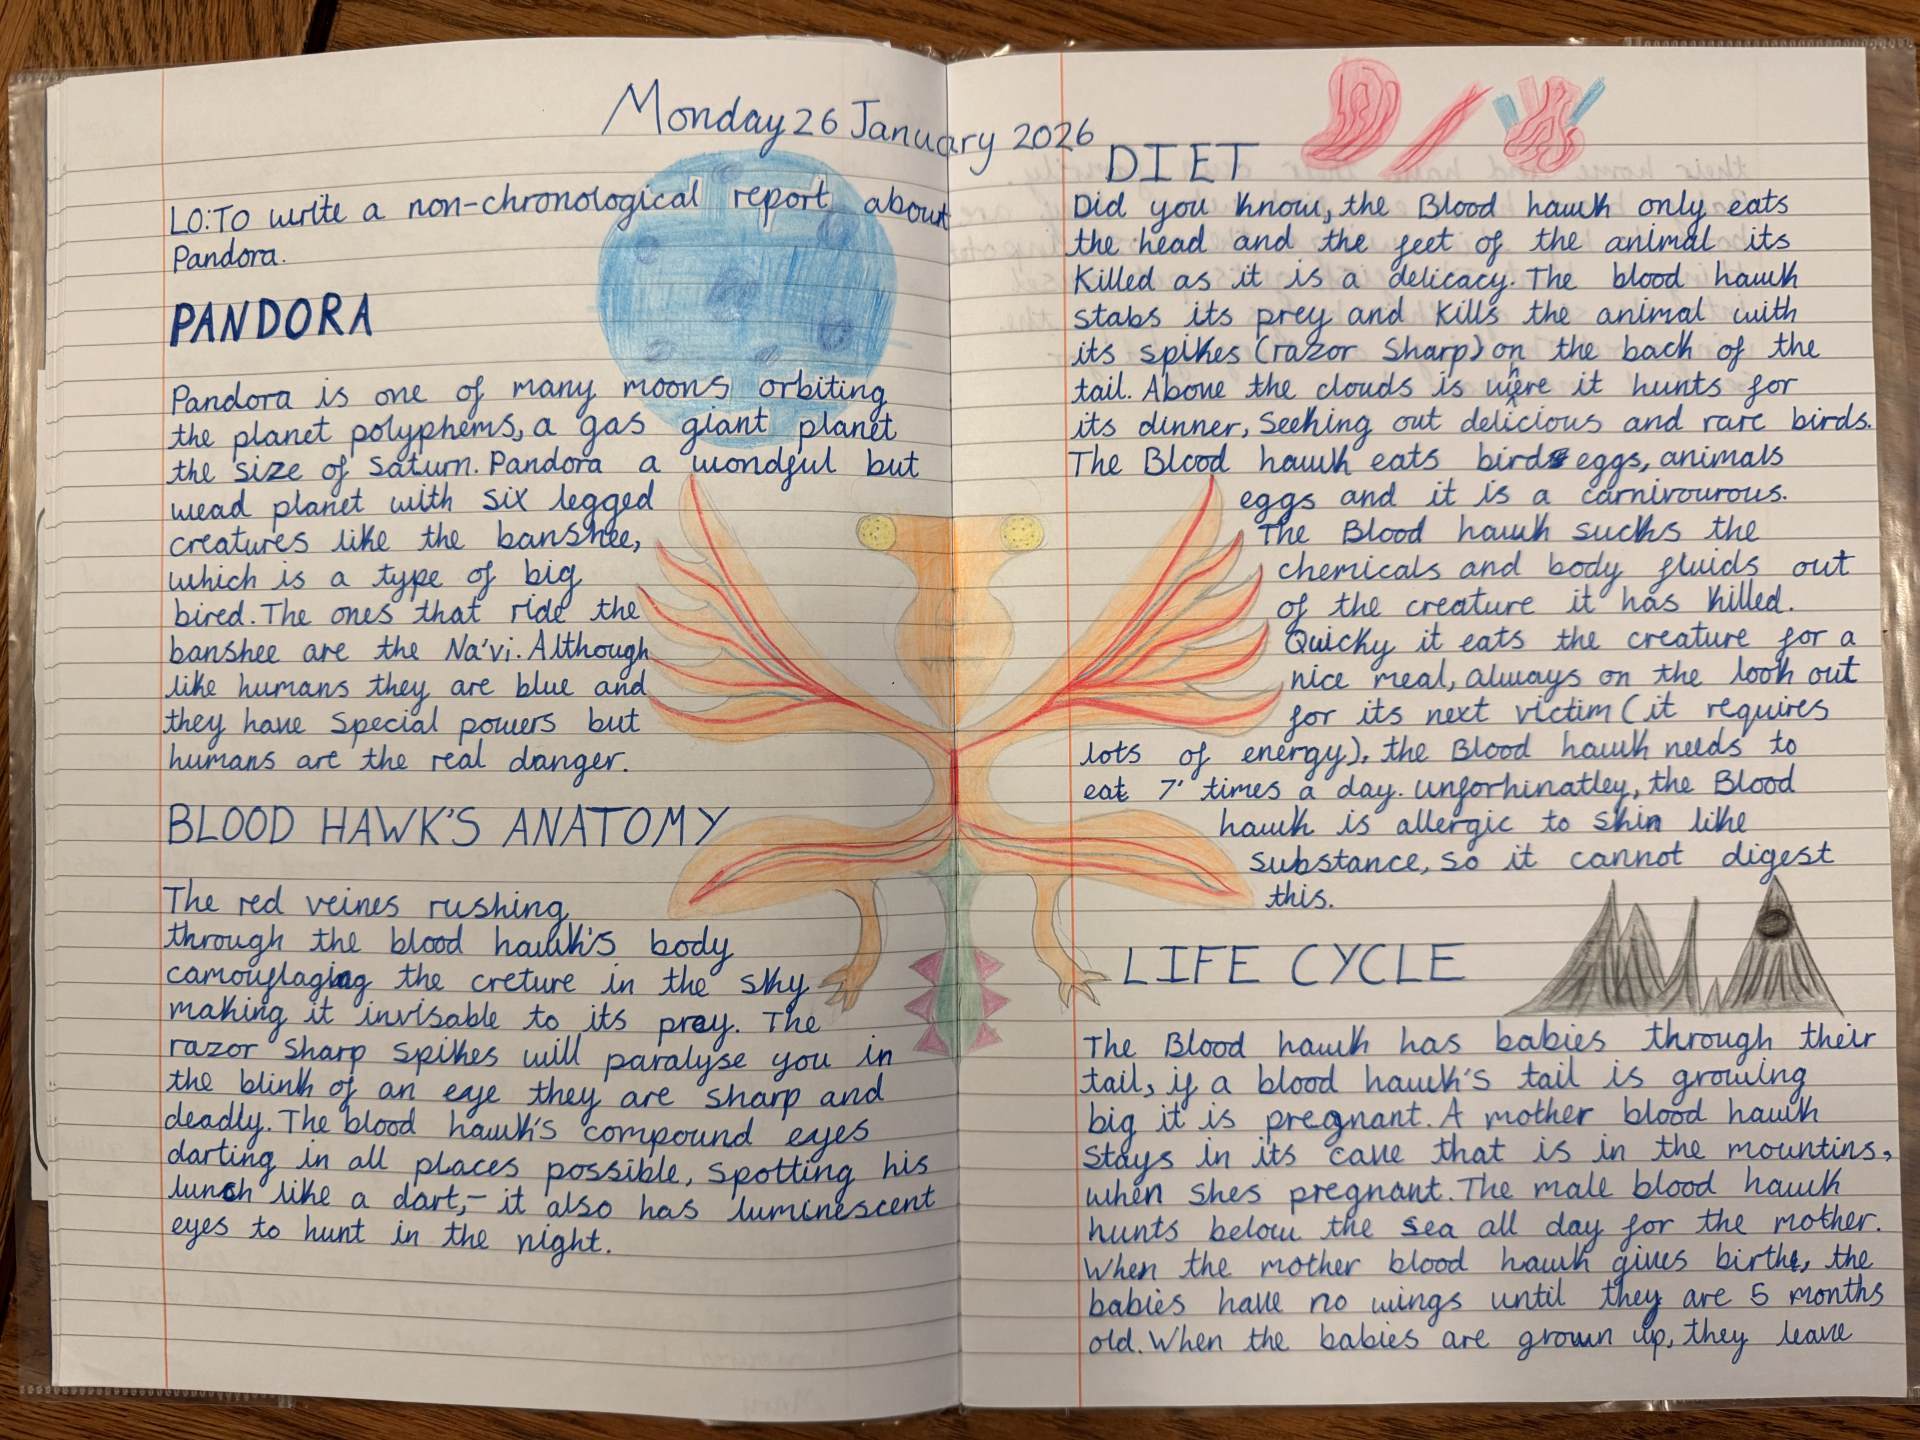 Monday 26 January 2026
LO:To write a non-chronological report about
Pandora.
PANDORA
Pandora is one of many moons orbiting
the planet polyphems, a gas giant planet
the size of saturn. Pandora a wondful but
wead planet with six legged
creatures like the banshee,
which is a type of big
bired. The ones that ride the
banshee are the Na'vi. Although
like humans they are blue and
they have special powers but
humans are the real danger.
BLOOD HAWK'S ANATOMY
The red veines rushing
through the blood hawk's body
camouflaging the creture in the sky
making it invisable to its prey. The
razor sharp spikes will paralyse you in
the blink of an eye they are sharp and
deadly. The blood hawk's compound eyes
darting in all places possible, spotting his
lunch like a dart,- it also has luminescent
eyes to hunt in the night.
DIET
Did you know, the Blood hawk only eats
the head and the feet of the animal its
killed as it is a delicacy. The blood hawk
stabs its prey and kills the animal with
its spikes (razor sharp) on the back of the
tail. Above the clouds is where it hunts for
its dinner, seeking out delicious and rare birds.
The Blood hawk eats birds eggs, animals
eggs and it is a carnivourous.
The Blood hawk sucks the
chemicals and body fluids out
of the creature it has killed.
Quicky it eats the creature for a
nice meal, always on the look out
for its next victim (it requires
lots of energy), the Blood hawk needs to
eat 7' times a day. unforhinatley, the Blood
hawk is allergic to skin like
substance, so it cannot digest
this.
LIFE CYCLE
The Blood hawk has babies through their
tail, if a blood hawk's tail is growing
big it is pregnant. A mother blood hawk
stays in its cave that is in the mountins,
when shes pregnant. The male blood hawk
hunts below the sea all day for the mother.
When the mother blood hawk gives birth, the
babies have no wings until they are 5 months
old. When the babies are grown up, they leave